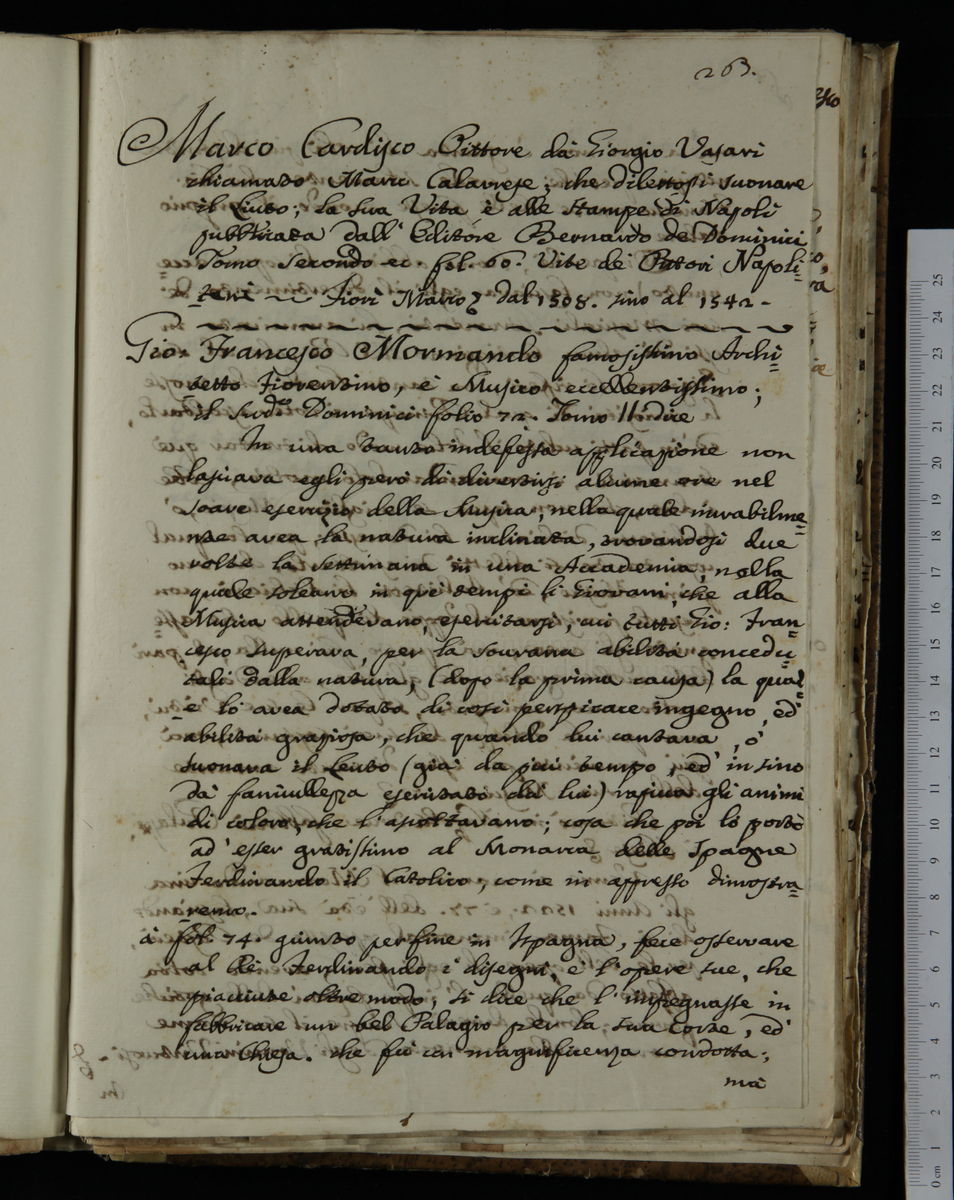 263.
Marco Cardisco Pittore da Giorgio Vasari
chiamato Marco Calavrese, che dilettosi suonare
il Liuto; la sua Vita è alle stampe di Napoli
pubblicata dall' Editore Bernardo de Dominici
Tomo Secondo ec. fol. 60. Vite dè Pittori Napoli=
tani ~ Fiorì Marco dal 1508. sino al 1542 -
Gio: Francesco Mormando famosissimo Archi=
tetto Fiorentino, e Musico eccellentissimo;
il sud.º Dominici folio 72. Tomo II. dice
In una tanto indefessa applicazione non
lasciava egli però di divertirsi alcune ore nel
soave esercizio della Musica, nella quale mirabilme=
nte avea la natura inclinata, trovandosi due
volte la settimana in una Accademia, nella
quale soleano in què tempi li Giovani, che alla
Musica attendevano, esercitarsi, cui tutti Gio: Fran=
cesco superava, per la sovrana abilità concedu=
tali dalla natura, (dopo la prima causa) la qual=
e lo avea dotato, di così perspicace ingegno, ed
abilità graziosa, che quando lui cantava, ò
suonava il Leuto (già da più tempo, ed in sino
da fanciullezza esercitato da lui) rapiva gli animi
di coloro, che l'ascoltavano; cosa che poi lo portò
ad esser gratissimo al Monarca delle Spagne
Ferdinando il Catolico, come in appresso dimostra=
remo.
à fol. 74. giunto perfine in Ispagna, fece osservare
al Rè Ferdinando i disegni, e l'opere sue, che
piacciute oltre modo, si dice che l'impegnasse in
fabbricare un bel Palagio per la sua Corte, ed
una Chiesa. che fù con magnificenza condotta;
mà